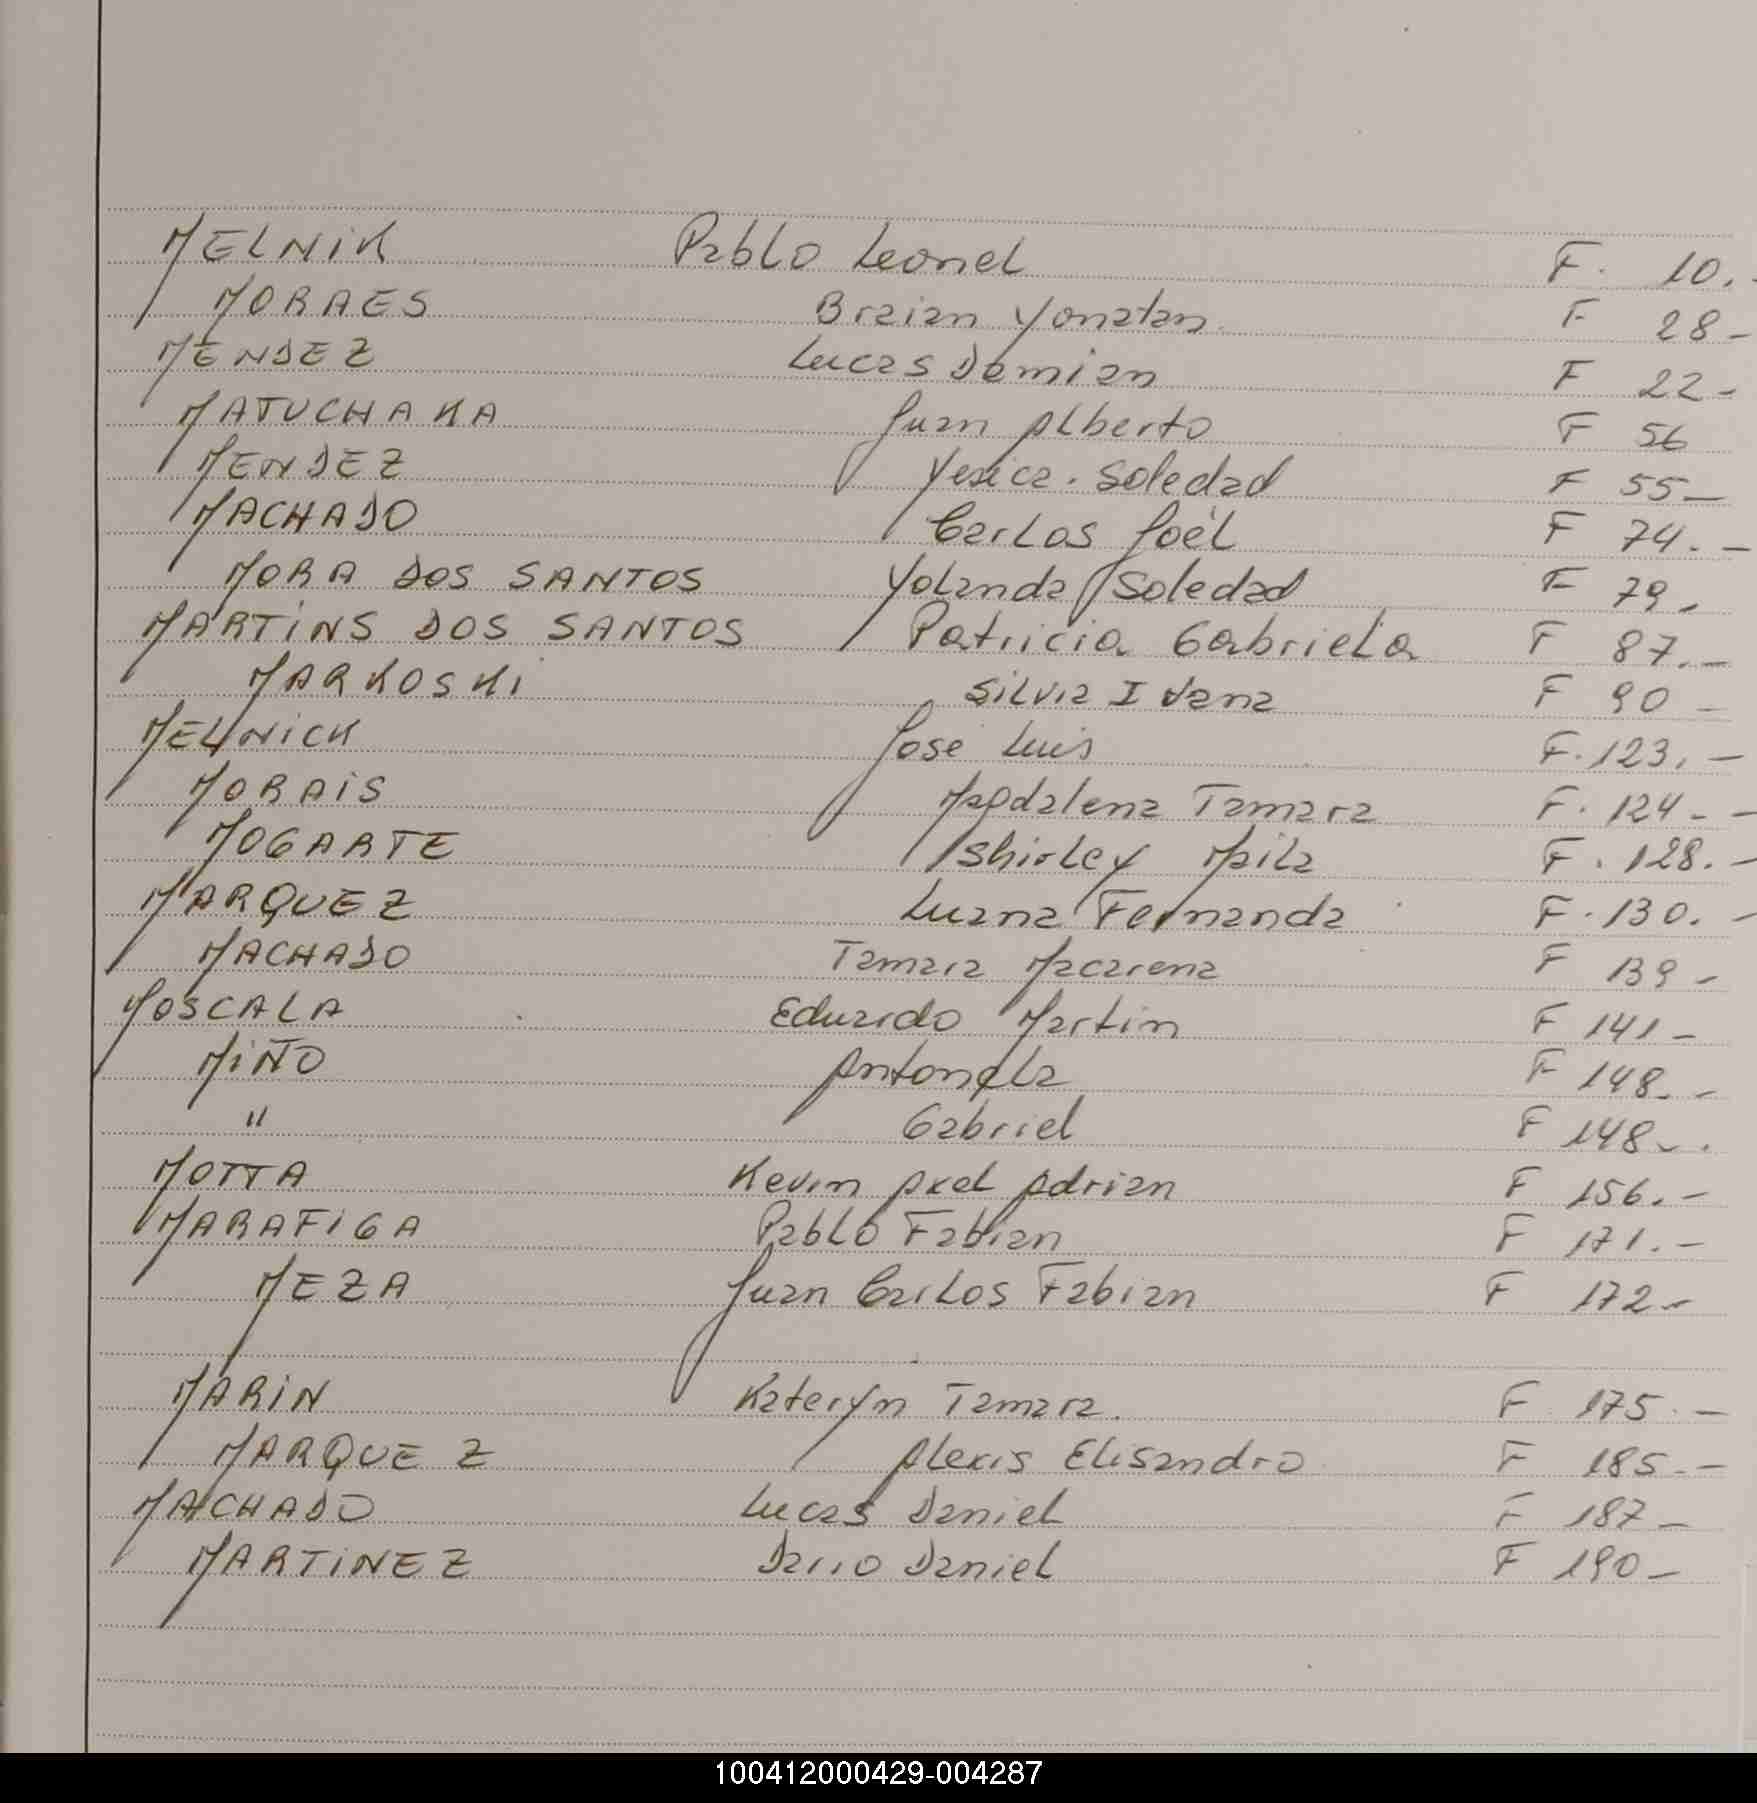 MELNIK Pablo Leonel F. 10.-
MORAES Braian Yonatan F 28-
MENDEZ Lucas Damian F 22-
MATUCHAKA Juan Alberto F 56
MENDEZ Yesica. Soledad F 55-
MACHADO Carlos Joél F 74.-
MORA DOS SANTOS Yolanda Soledad F 79-
MARTINS DOS SANTOS Patricia Gabriela F 87.-
MARKOSKI Silvia Ivana F 90-
MELNICK José Luis F. 123.-
MORAIS Magdalena Tamara F. 124.-
MOGARTE Shirley Maila F. 128.-
MARQUEZ Luana Fernanda F. 130.-
MACHADO Tamara Macarena F 139-
MOSCALA Eduardo Martin F 141-
MIÑO Antonela F 148.-
" Gabriel F 148-.
MOTTA Kevin Axel Adrian F 156.-
MARAFIGA Pablo Fabian F 171.-
MEZA Juan Carlos Fabian F 172-
MARIN Kateryn Tamara. F 175.-
MARQUEZ Alexis Elisandro F 185.-
MACHADO Lucas Daniel F 187-
MARTINEZ Dario Daniel F 190-
100412000429-004287